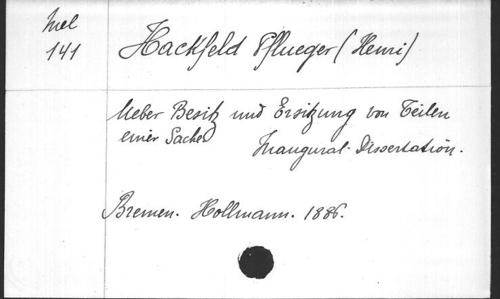 Mel
141
Hackfeld Pflueger (Henri)
Ueber Besitz und Ersitzung von Teilen
einer Sache
Inaugural-Dissertation.
Bremen. Hollmann. 1886.